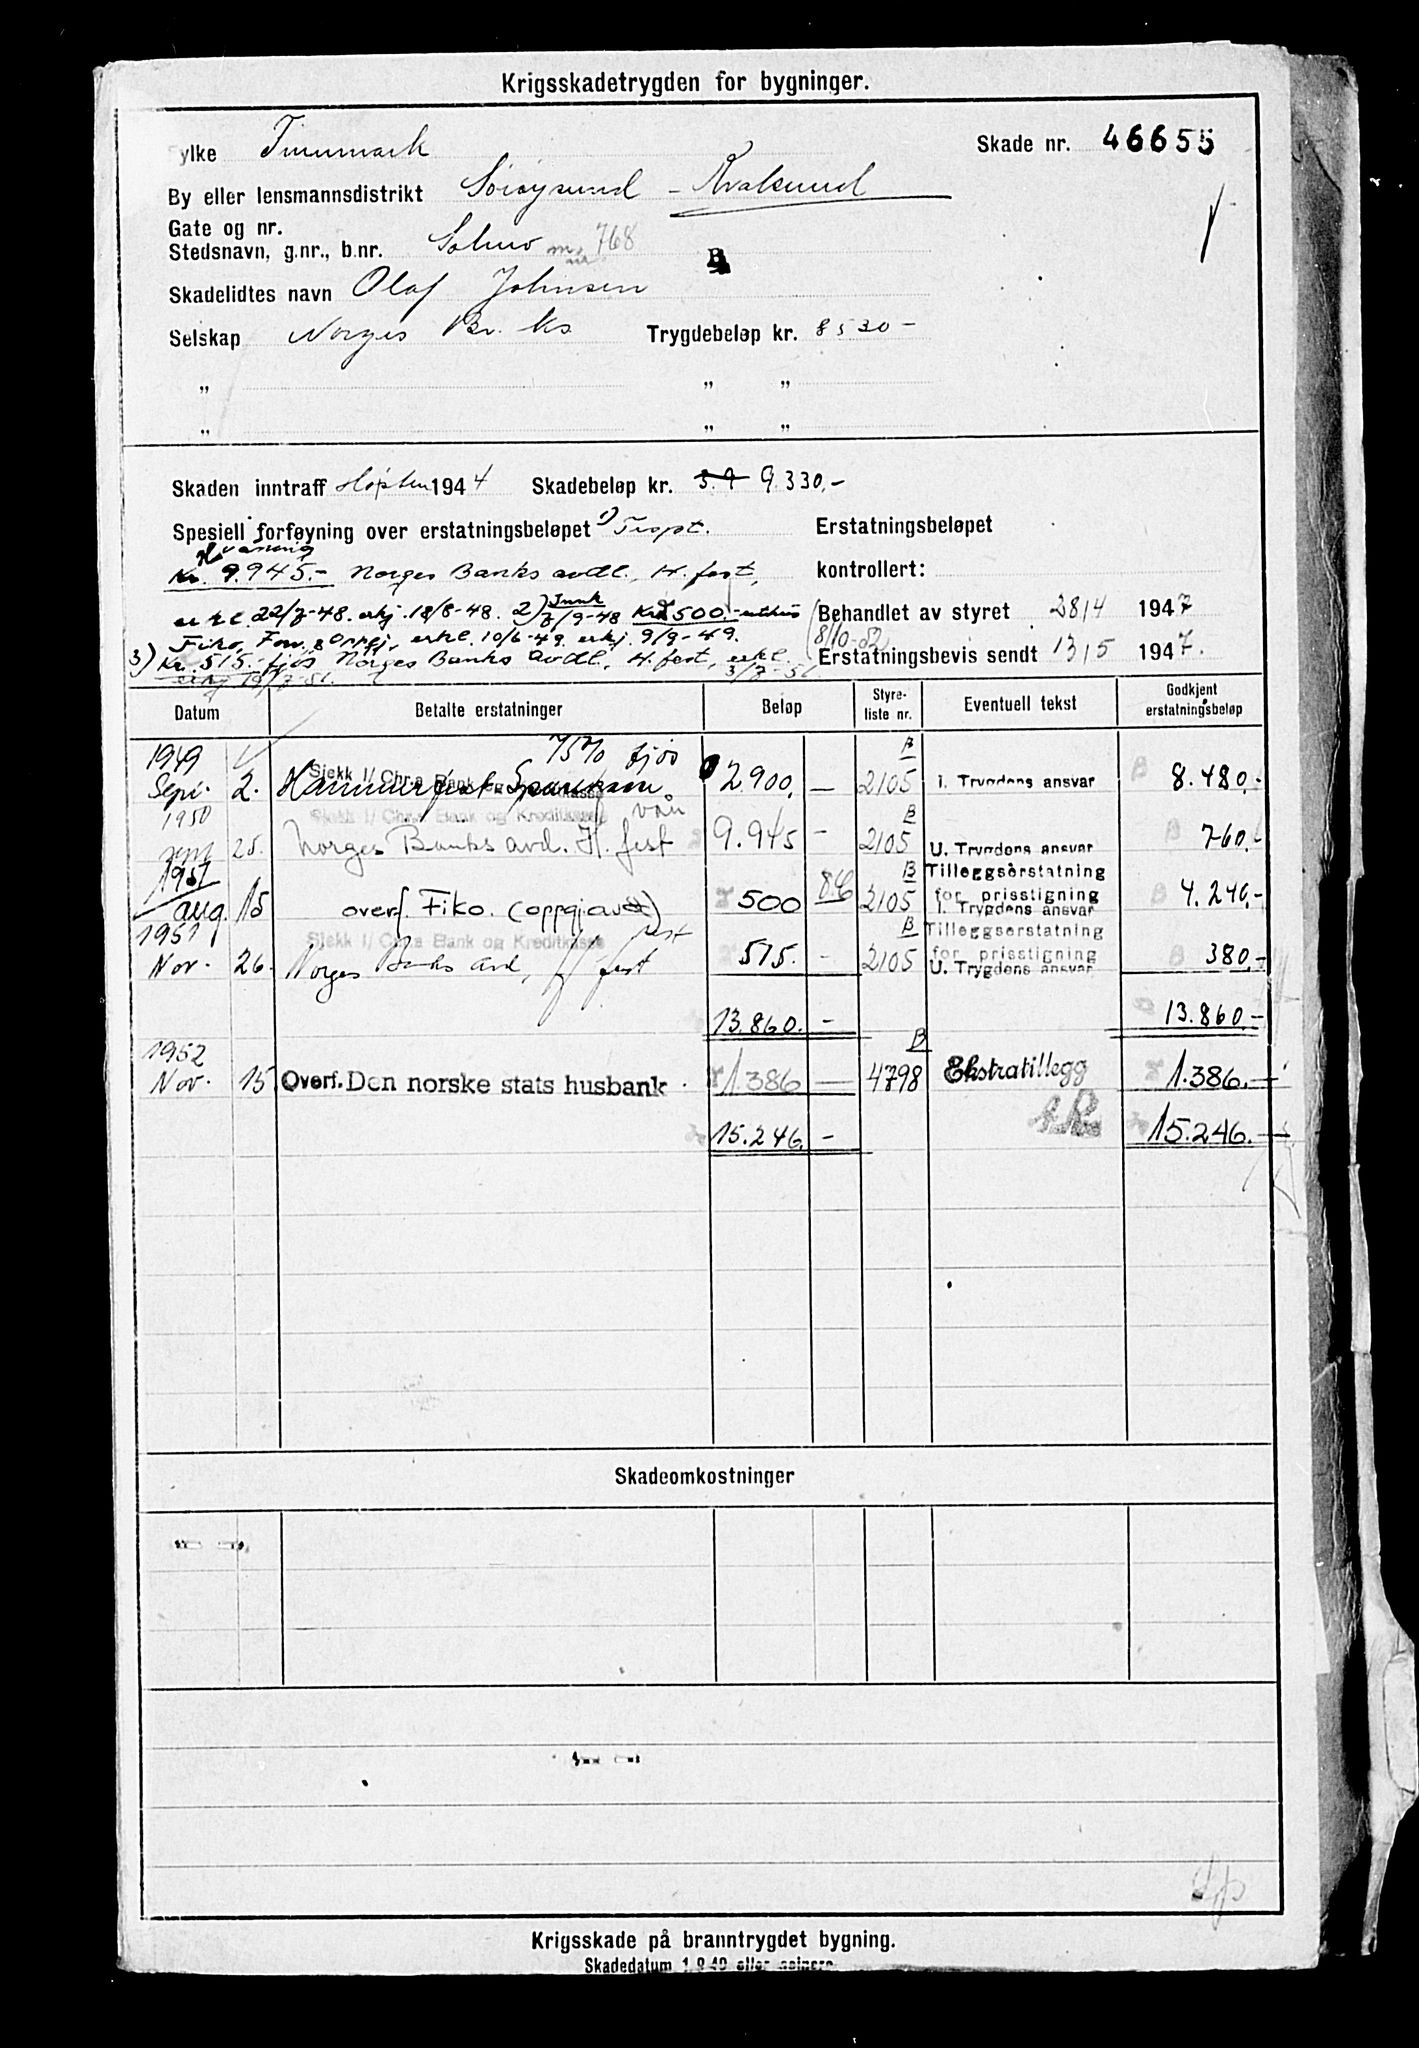 Krigsskadetrygden for bygninger.
Fylke Finnmark Skade nr. 46655
By eller lensmannsdistrikt Sørøysund - Kvalsund
Gate og nr.
Stedsnavn, g.nr., b.nr. 768
B
Skadelidtes navn Olaf Johnsen
Selskap Norges Br. ks Trygdebeløp kr. 8530-
" " "
" " "
Skaden inntraff Høsten 1944 Skadebeløp kr. 9.330,-
Spesiell forføyning over erstatningsbeløpet 1) Tregst. Erstatningsbeløpet
våning
Kr. 9.945.- Norges Banks avdl., H.fest, kontrollert:
erkl. 22/7-48. erkj. 18/8-48. 2) Innk 7/9-48 Kr 500.- uthus Behandlet av styret 28/4 1947
Fiko, For. & Oppgj., erkl. 10/6-49 erkj. 9/9-49. 8/10-52
3) Kr. 515.- fjøs Norges Banks avdl., H.fest, erkl. 3/7-51 Erstatningsbevis sendt 13/5 1947.
erkj 19/7-51.
Datum Betalte erstatninger Beløp Styreliste nr. Eventuell tekst Godkjent erstatningsbeløp
1949 75% fjøs B
Sjekk 1/ Chr.a Bank og Kreditkasse
Sept. 2. Hammerfest Sparekasse 2.900,- 2105 I. Trygdens ansvar 8.480,-
1950 Sjekk 1/ Chr.a Bank og Kreditkasse vån B
25. Norges Banks avd. H.fest 9.945 - 2105 U. Trygdens ansvar 760,-
1951 B Tilleggserstatning
aug. 15 overf. Fiko. (oppgj avd) 500 2105 for prisstigning I. Trygdens ansvar 4.240,-
1951 Sjekk 1/ Chr.a Bank og Kreditkasse B Tilleggserstatning
Nov. 26. Norges Banks avd, H.fest 515. - 2105 for prisstigning U. Trygdens ansvar 380,-
13.860. - 13.860,-
1952 B
Nov. 15 Overf. Den norske stats husbank 1386 — 4798 Ekstratillegg 1.386.—
15.246. - 15.246.—
Skadeomkostninger
Krigsskade på branntrygdet bygning.
Skadedatum 1.9.40 eller seinere.